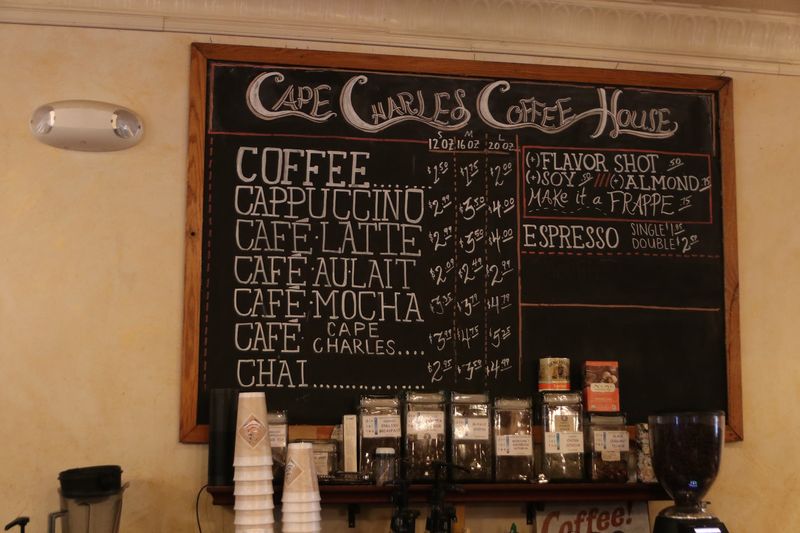 CAPE CHARLES COFFEE HOUSE
S M L
12 OZ 16 OZ 20 OZ
COFFEE.......... $1.50 $1.75 $2.00
CAPPUCCINO $2.99 $3.50 $4.00
CAFÉ·LATTE $2.99 $3.50 $4.00
CAFÉ·AULAIT $2.09 $2.49 $2.99
CAFÉ·MOCHA $3.35 $4.79
CAFÉ CAPE CHARLES.... $3.99 $4.75 $5.25
CHAI.............. $4.99
(+) FLAVOR SHOT .50
(+) SOY .50 /// (+) ALMOND .75
MAKE it a FRAPPE .75
ESPRESSO SINGLE $1.95
DOUBLE $2.50
Coffee!